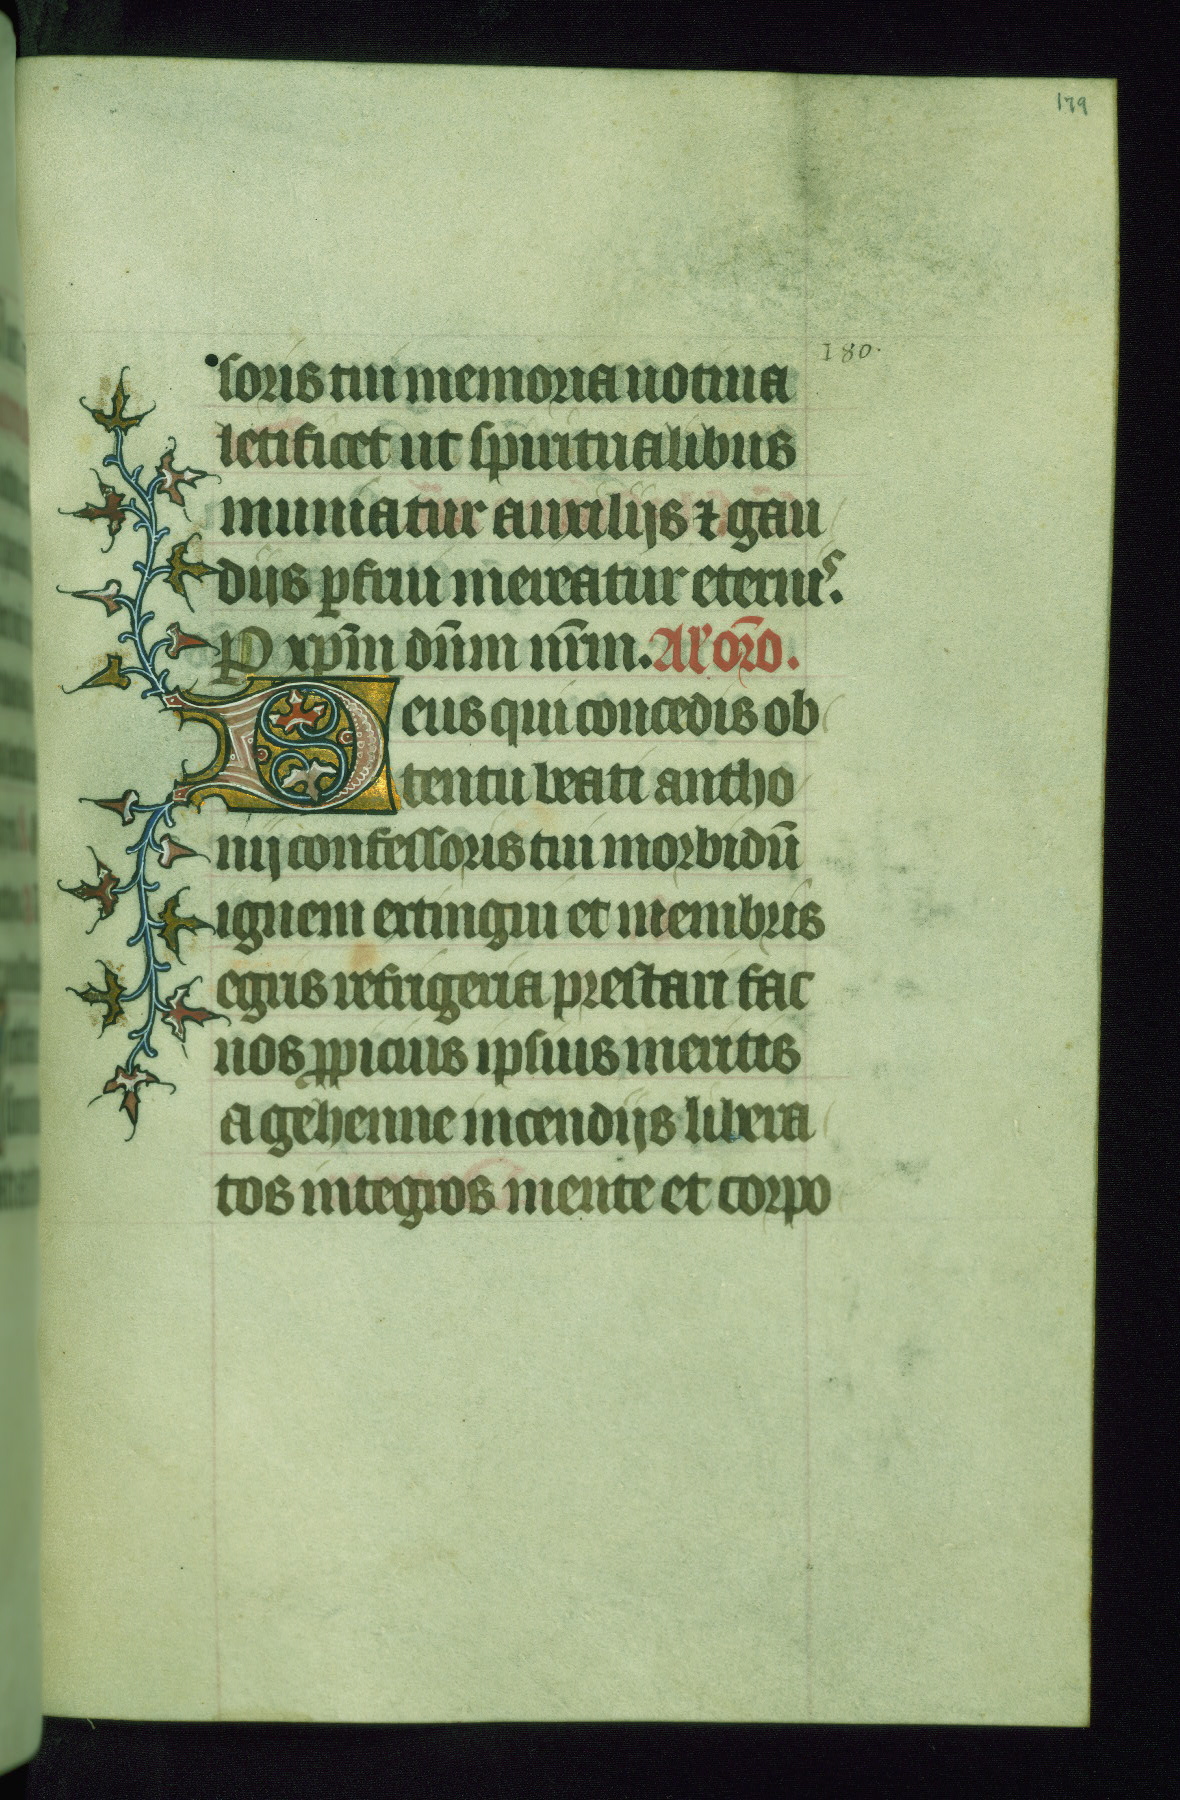 179
180.
soris tui memoria uotiua
letificet ut spiritualibus
muniatur auxilijs ⁊ gau
dijs ꝑfrui mereatur eternis.
P xp̄m dn̄m nr̄m. Al' or̄o.
Deus qui concedis ob
tentu beati antho
nij confessoris tui morbidū
ignem extingui et membris
egris refrigeria prestari fac
nos ꝓpicius ipsius meritis
a gehenne incendijs libera
tos integros mente et corpo